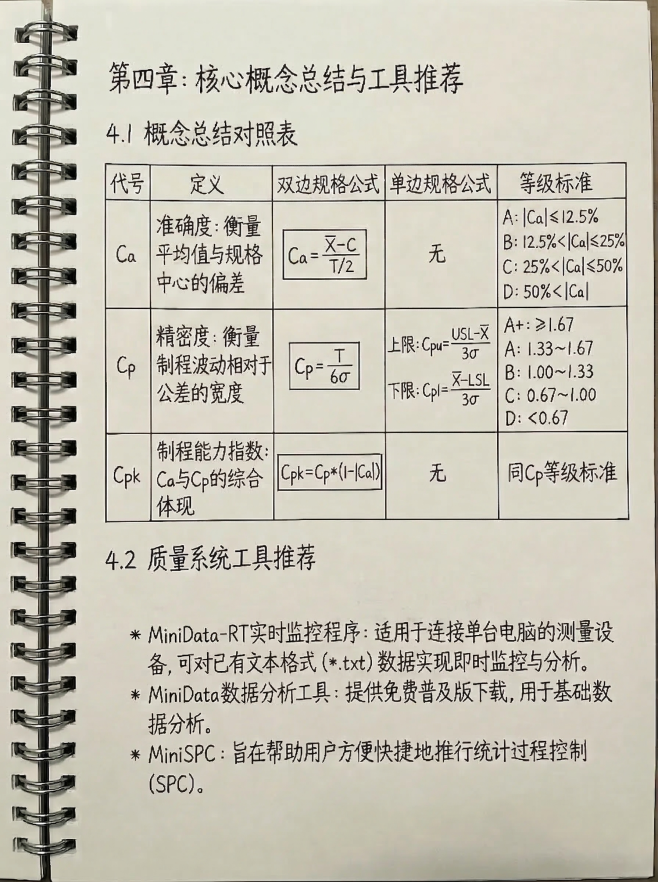 第四章：核心概念总结与工具推荐
4.1 概念总结对照表
代号 定义 双边规格公式 单边规格公式 等级标准
Ca
准确度：衡量
平均值与规格
中心的偏差
Ca = (X̄-C)/(T/2)
无
A: |Ca|≤12.5%
B: 12.5%<|Ca|≤25%
C: 25%<|Ca|≤50%
D: 50%<|Ca|
Cp
精密度：衡量
制程波动相对于
公差的宽度
Cp = T/6σ
上限: Cpu= (USL-X̄)/3σ
下限: Cpl= (X̄-LSL)/3σ
A+: ≥1.67
A: 1.33~1.67
B: 1.00~1.33
C: 0.67~1.00
D: <0.67
Cpk
制程能力指数:
Ca与Cp的综合
体现
Cpk=Cp*(1-|Ca|)
无
同Cp等级标准
4.2 质量系统工具推荐
* MiniData-RT实时监控程序：适用于连接单台电脑的测量设
备，可对已有文本格式 (*.txt) 数据实现即时监控与分析。
* MiniData数据分析工具：提供免费普及版下载，用于基础数
据分析。
* MiniSPC：旨在帮助用户方便快捷地推行统计过程控制
(SPC)。